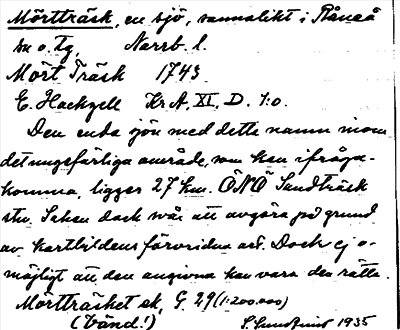 Mörtträsk, en sjö, sannolikt i Råneå
sn o. tg, Norrb. l.
Mört Träsk 1743
E. Hackzell Kr A, XI, D. 1:o.
Den enda sjön med detta namn inom
det ungefärliga område, som kan ifråga-
komma, ligger 27 km. ÖNÖ Sandträsk
stn. Saken dock svår att avgöra på grund
av kartbildens förvridna art. Dock ej o-
möjligt att den angivna kan vara den rätta.
Mörtträsket ek. G. 29 (1:200.000)
(Vänd!) 1935